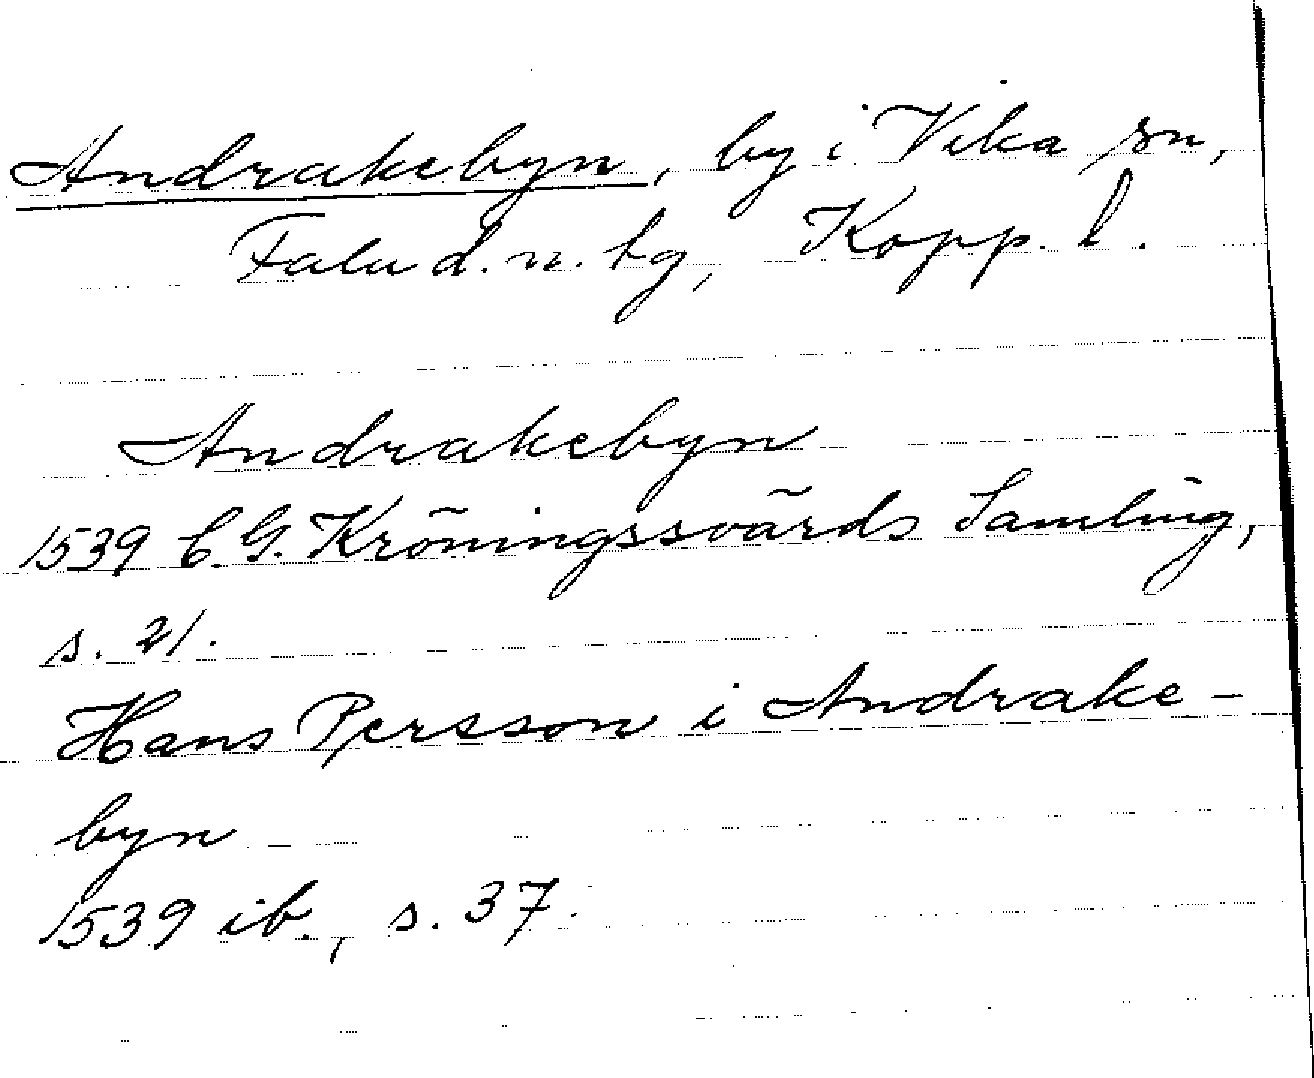 Andrakebyn, by i Vika sn,
Falu d. n. tg, Kopp. l.
Andrakebyn
1539 C. G. Kröningssvärds Samling,
s. 21.
Hans Persson i Andrake-
byn
1539 ib., s. 37.